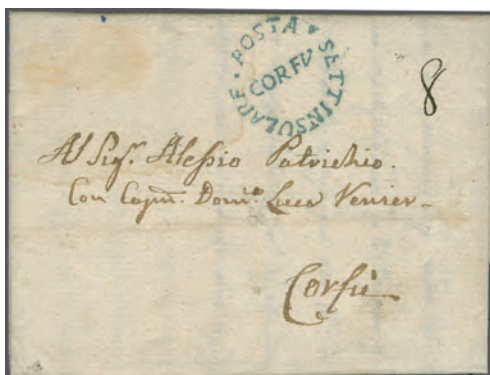 POSTA • SETTINSULARE •
CORFU
8
Al Sigr. Alessio Patrichio.
Con Capn. Domo. Luca Venier
Corfù